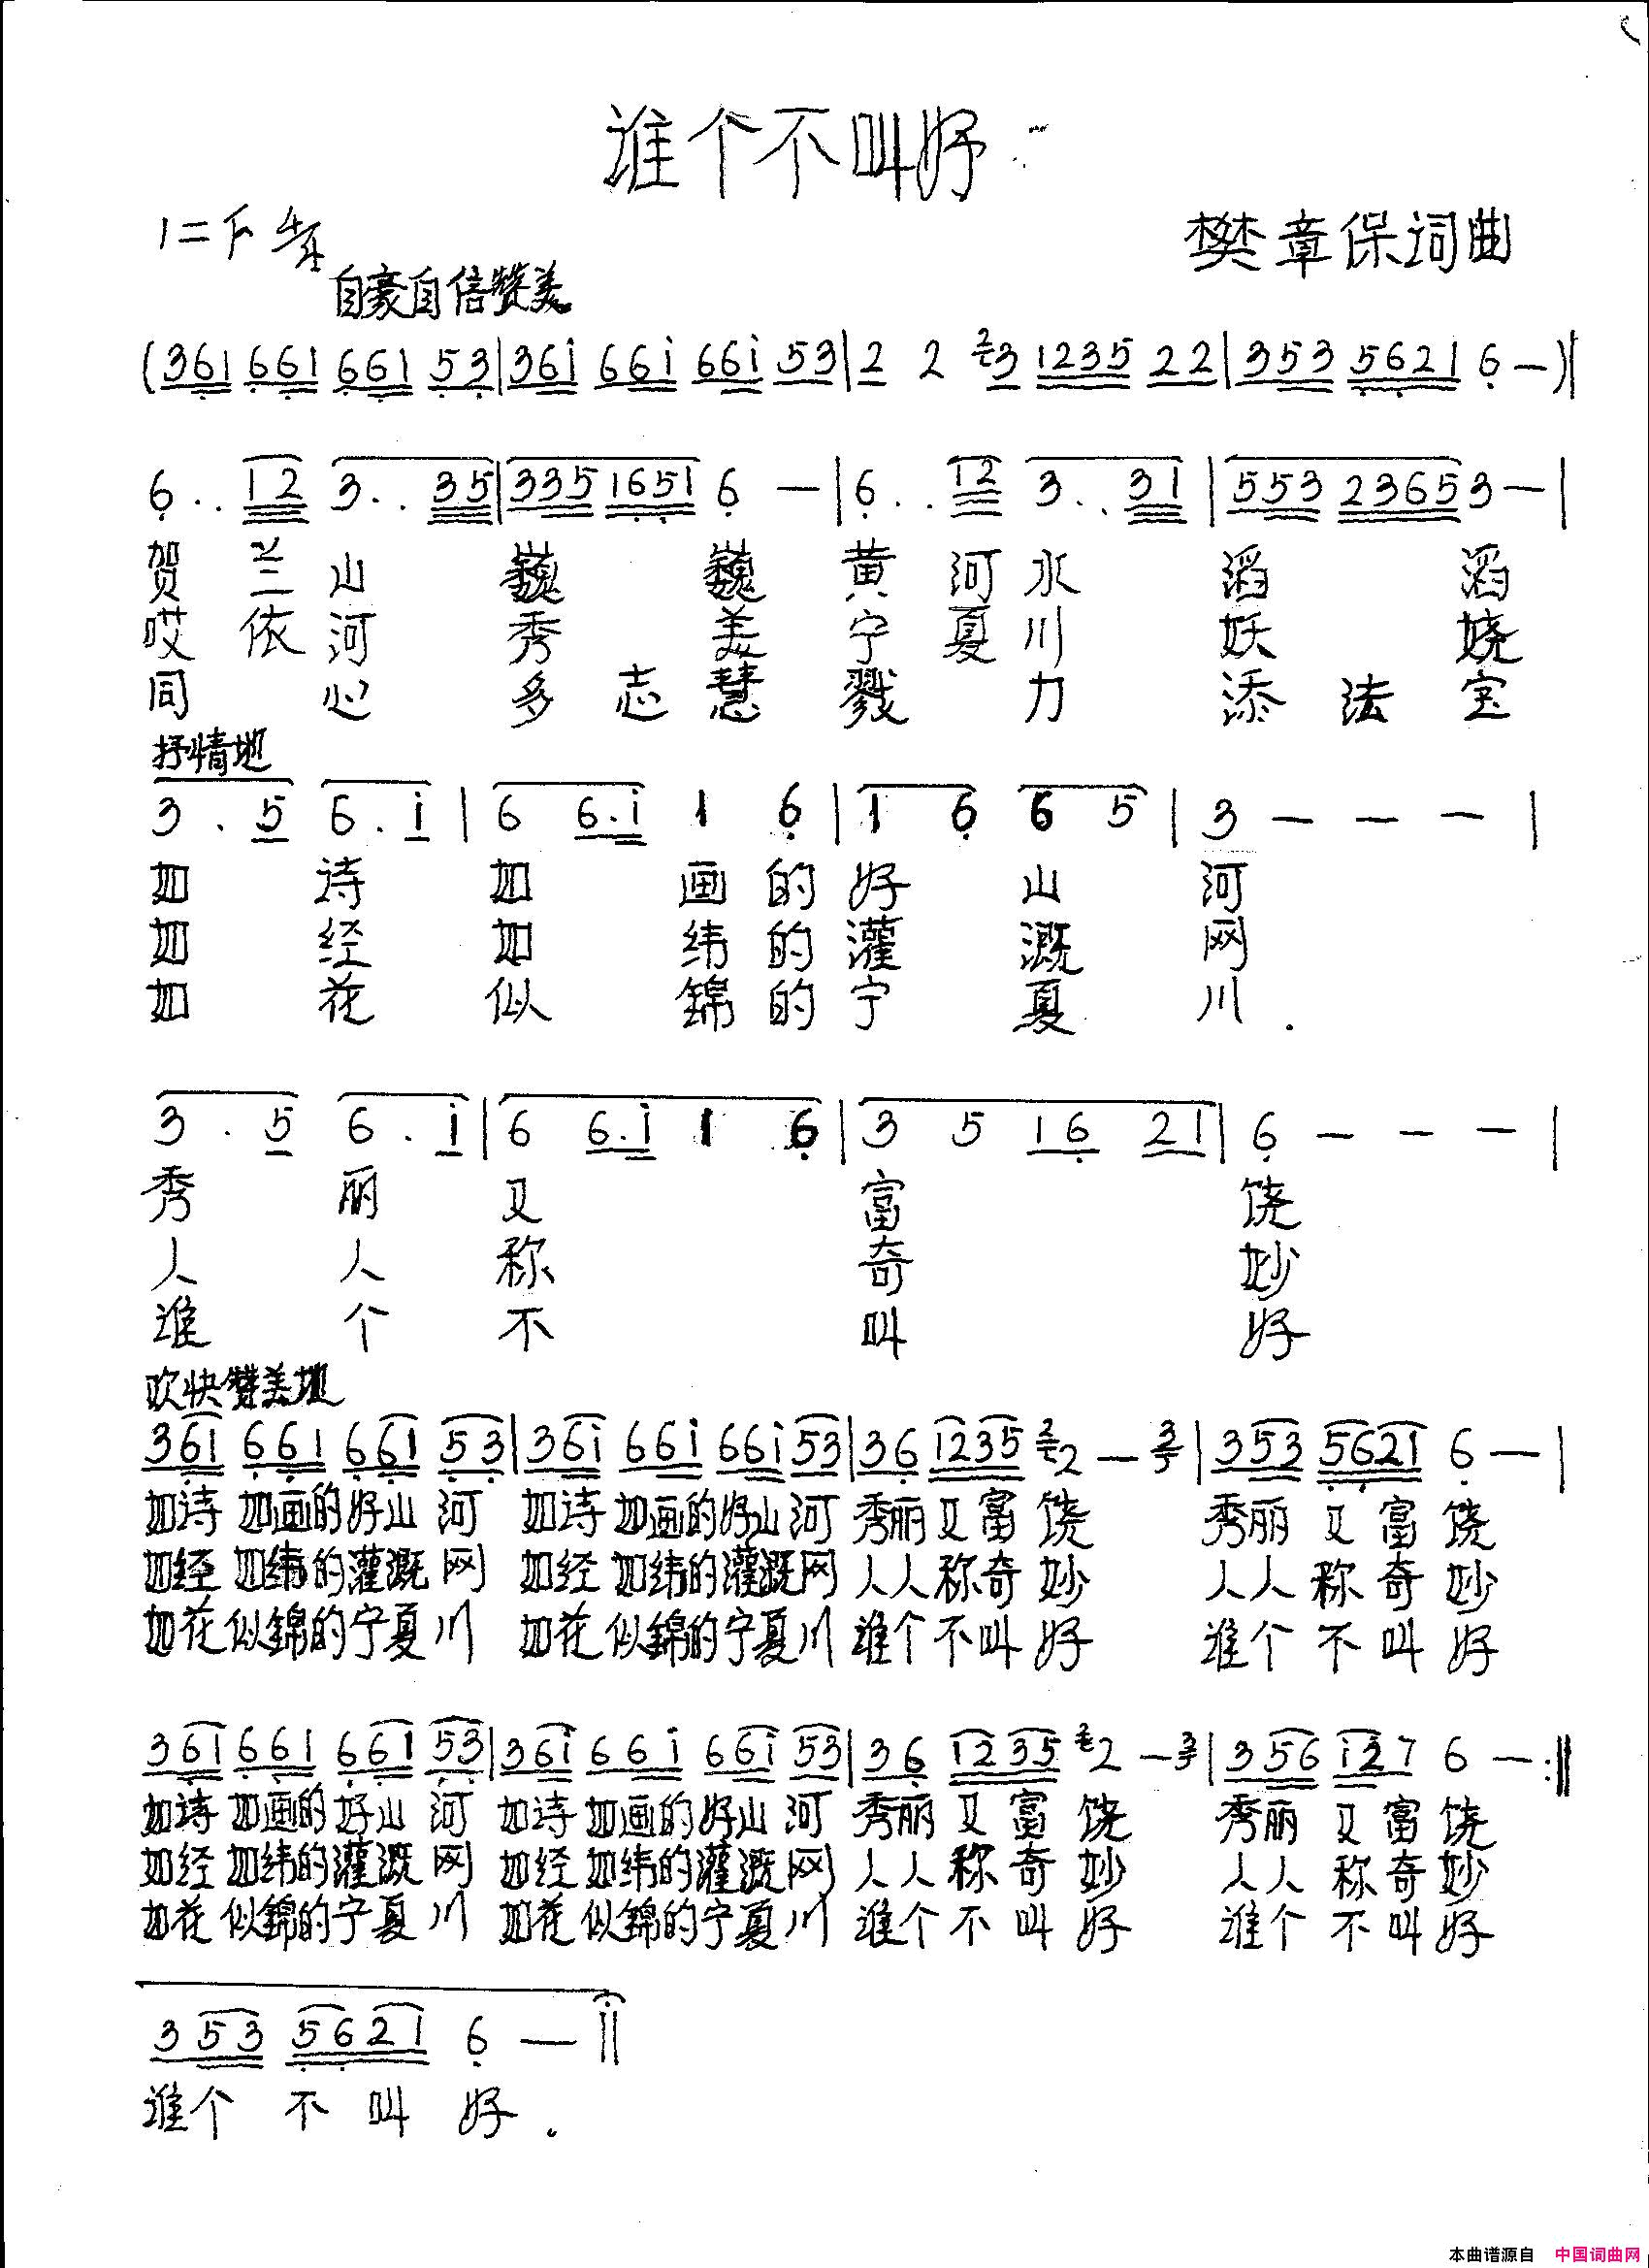 谁个不叫好
1=F 4/4
樊章保词曲
自豪自信赞美
(361 661 661 53|36i 66i 66i 53|2 2 3 1235 22|353 5621 6 —)‖
6.. 12 3.. 35|335 1651 6 —|6.. 12 3.. 31|553 2365 3 —|
贺兰山 巍 巍 黄河水 滔 滔
哎依河 秀 美 宁夏川 妖 娆
同心 多志慧 戮力 添法宝
抒情地
3 . 5 6 . i|6 6.i 1 6|1 6 6 5|3 — — —|
如 诗 如 画的好 山 河
如 经 如 纬的灌 溉 网
如 花 似 錦的宁 夏 川.
3 . 5 6 . i|6 6.i 1 6|3 5 16 21|6 — — —|
秀 丽 又 富 饶
人 人 称 奇 妙
谁 个 不 叫 好
欢快赞美地
361 661 661 53|36i 66i 66i 53|36 1235 2 —|353 5621 6 —|
如诗 如画的好山河 如诗 如画的好山河 秀丽又富饶 秀丽又富饶
如经 如纬的灌溉网 如经 如纬的灌溉网 人人称奇妙 人人称奇妙
如花 似錦的宁夏川 如花 似錦的宁夏川 谁个不叫好 谁个不叫好
361 661 661 53|36i 66i 66i 53|36 1235 2 —|356 i27 6 — :‖
如诗 如画的好山河 如诗 如画的好山河 秀丽又富饶 秀丽又富饶
如经 如纬的灌溉网 如经 如纬的灌溉网 人人称奇妙 人人称奇妙
如花 似錦的宁夏川 如花 似錦的宁夏川 谁个不叫好 谁个不叫好
353 5621 6 — ‖
谁个 不叫好.
本曲谱源自 中国词曲网